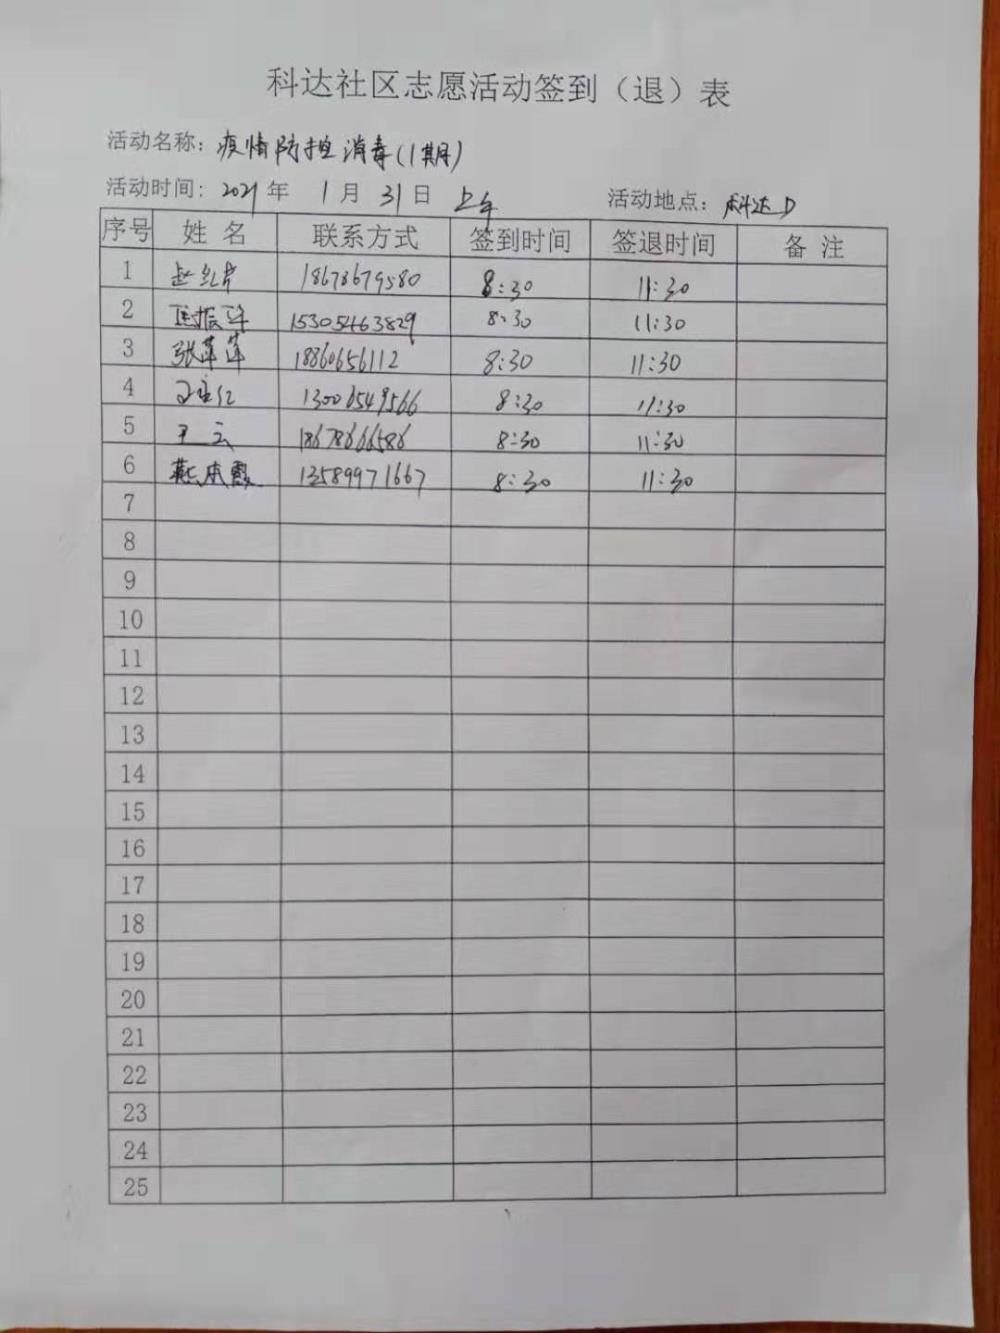 科达社区志愿活动签到（退）表
活动名称：疫情防控消毒(1期)
活动时间：2021年 1月 31日 上午 活动地点：科达D
序号 姓名 联系方式 签到时间 签退时间 备注
1 18678679580 8:30 11:30
2 15305463829 8:30 11:30
3 张萍萍 18860656112 8:30 11:30
4 13006549566 8:30 11:30
5 18678666586 8:30 11:30
6 燕本霞 13589971667 8:30 11:30
7
8
9
10
11
12
13
14
15
16
17
18
19
20
21
22
23
24
25